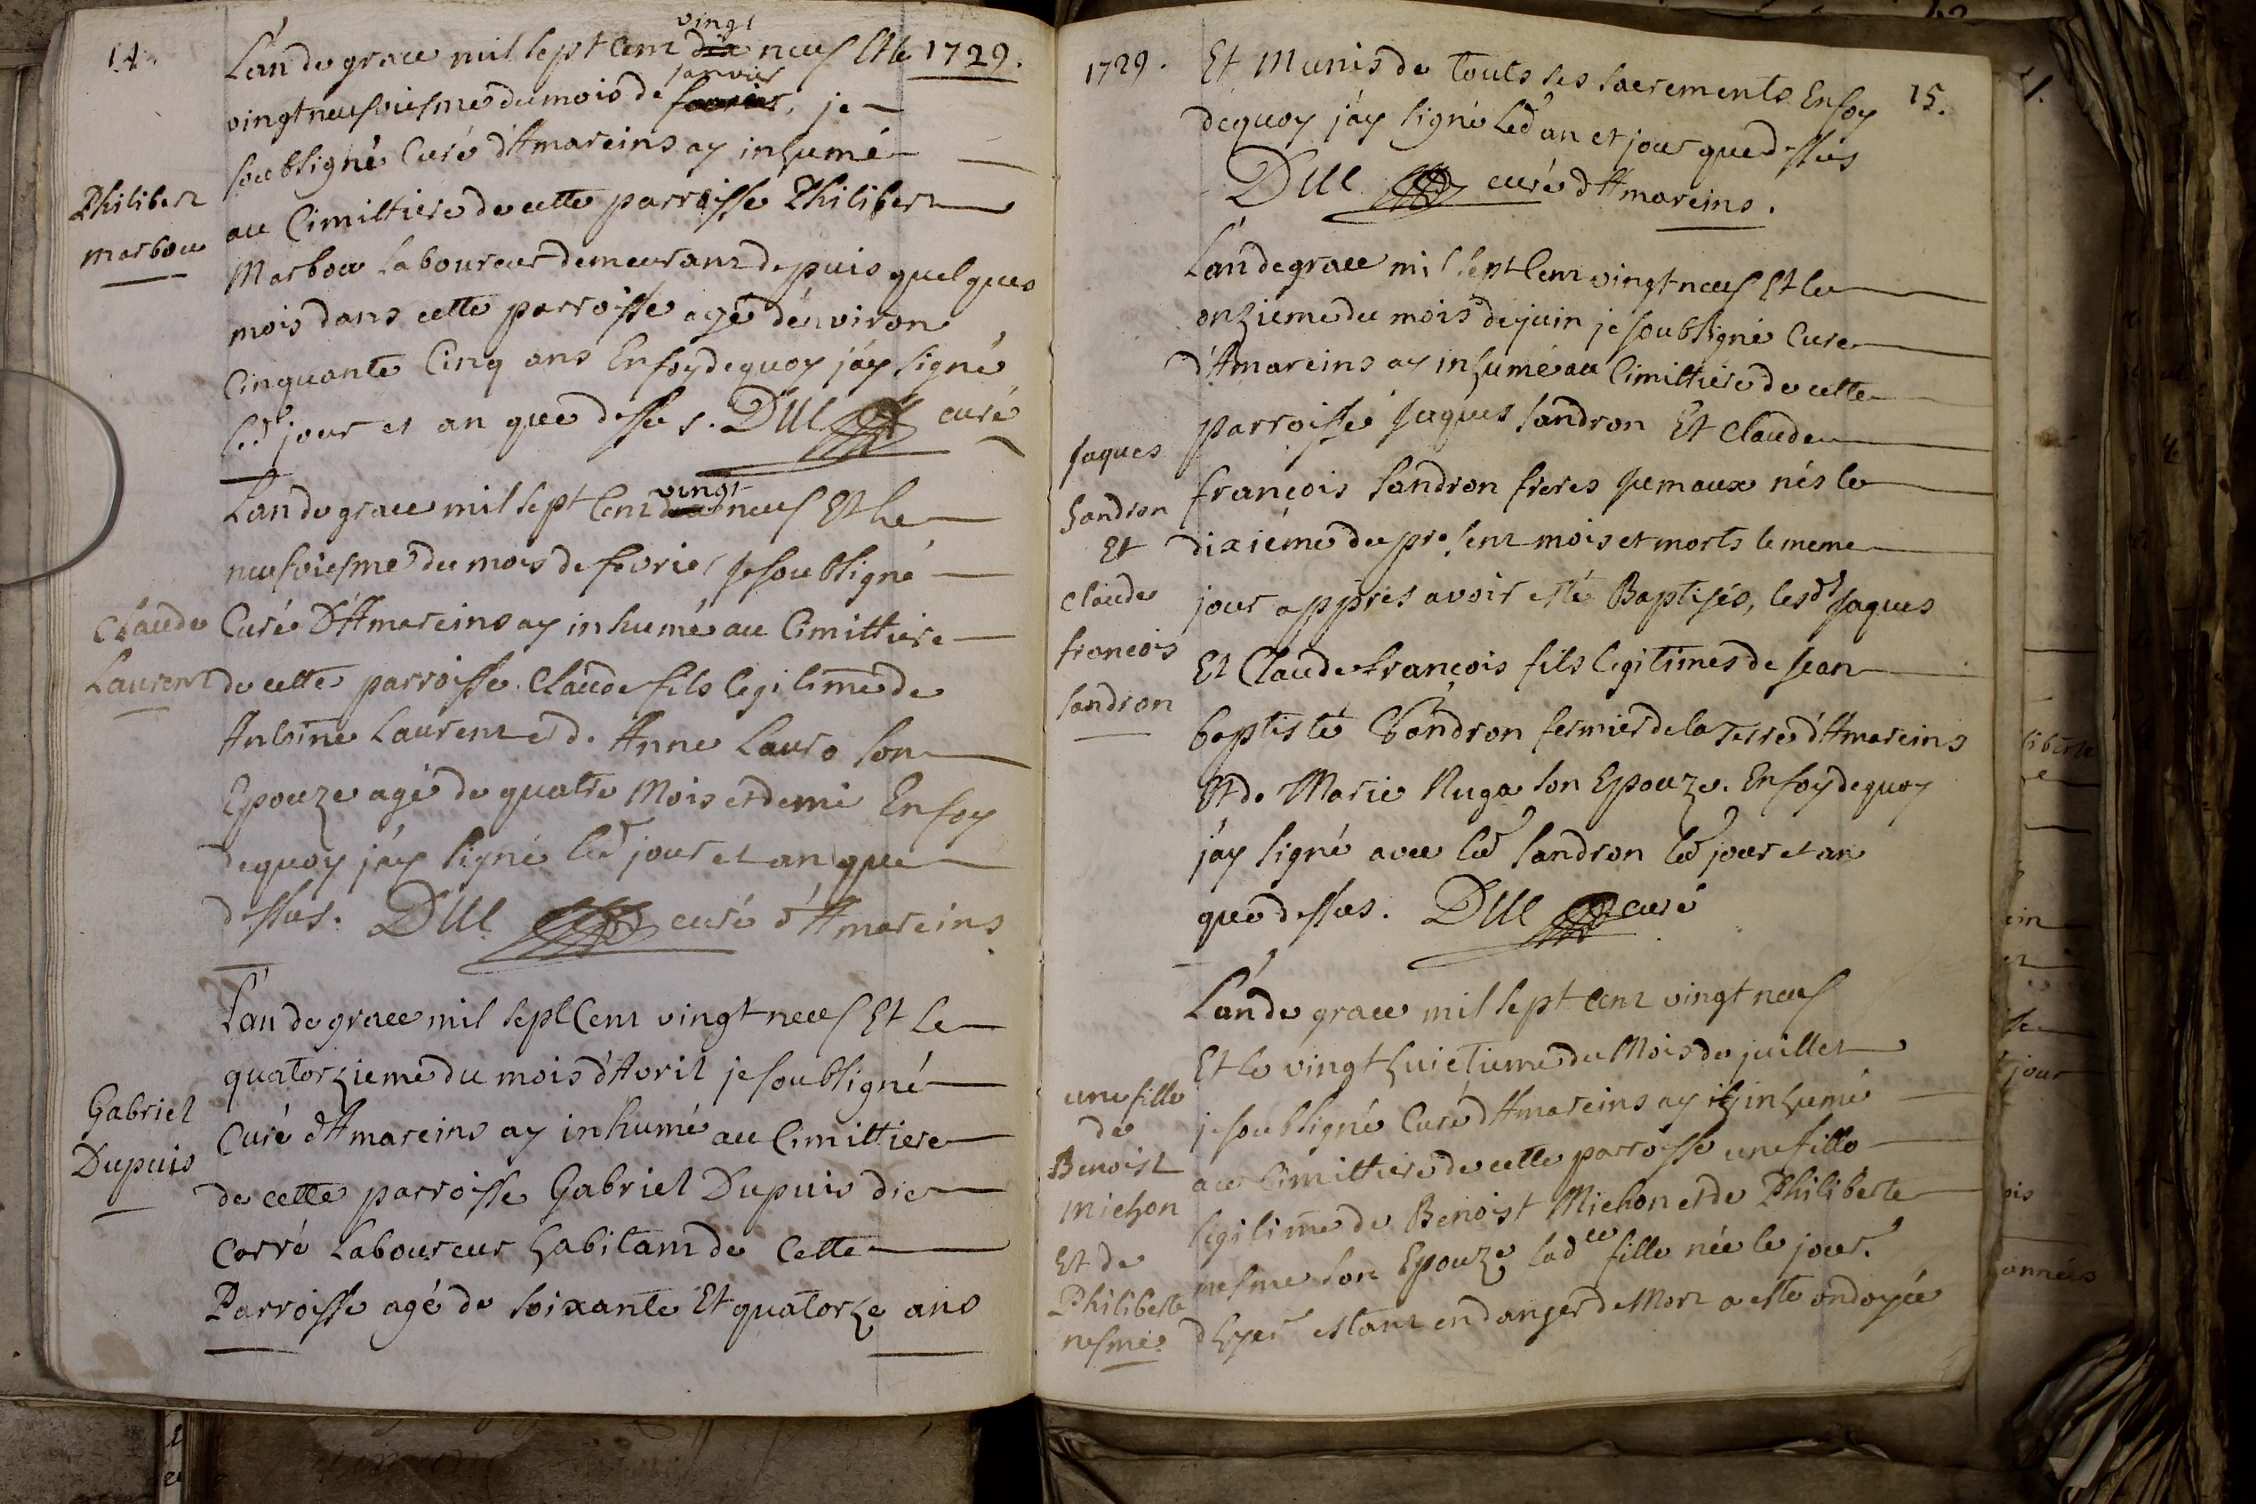 14.
L'an de grace mil sept Cent dix vingt neuf Et le 1729.
vingt neufviesme du mois de fevrier janvier, je
soubsigné Curé d'Amareins ay inhumé
au Cimittiere de cette parroisse Philibert
Marbou Laboureur demeurant depuis quelques
mois dans cette parroisse agé d'environ
Cinquante Cinq ans En foy de quoy j'ay signé
led jour et an que dessus. DUC curé
Philibert
marbou
L'an de grace mil sept Cent dix vingt neuf Et le
neufviesme du mois de fevrier je soubsigné
Curé D'Amareins ay inhumé au Cimittiere
de cette parroisse Claude fils legitime de
Antoine Laurent et d. Anne Lauro son
Epouze agé de quatre Mois et demi En foy
de quoy j'ay signé led jour et an que
dessus. DUC curé d'Amareins
Claude
Laurent
L'an de grace mil sept Cent vingt neuf Et le
quatorzieme du mois d'Avril je soubsigné
Curé d'Amareins ay inhumé au Cimittiere
de cette parroisse Gabriel Dupuis dit
Carré Laboureur habitant de Cette
Parroisse agé de soixante Et quatorze ans
Gabriel
Dupuis
1729.
15.
Et Munis de touts ses sacrements En foy
dequoy j'ay signé led an et jour que dessus
DUC curé d'Amareins.
L'an de grace mil sept Cent vingt neuf Et le
onzieme du mois de juin je soubsigné Curé
d'Amareins ay inhumé au Cimittiere de cette
parroisse Jaques Sandron Et Claude
françois Sandron freres Jemaux nés le
dixiéme du present mois et morts le meme
jour appres avoir esté Baptisés, lesd Jaques
Et Claude françois fils legitimes de Jean
baptiste Sandron fermier de la Terre d'Amareins
Et de Marie Ruga son Epouze. En foy de quoy
j'ay signé avec led Sandron led jour et an
que dessus. DUC curé
Jaques
Sandron
Et
Claude
françois
Sandron
L'an de grace mil sept cent vingt neuf
Et le vingt huictieme du Mois de juillet
je soubsigné Curé d'Amareins ay inhumé
au Cimittiere de cette parroisse une fille
legitime de Benoist Michon et de Philiberte
nesme son Epouze lad fille née le jour
d'hyer estant en danger de Mort a esté ondoyée
une fille
de
Benoist
michon
Et de
Philiberte
nesme